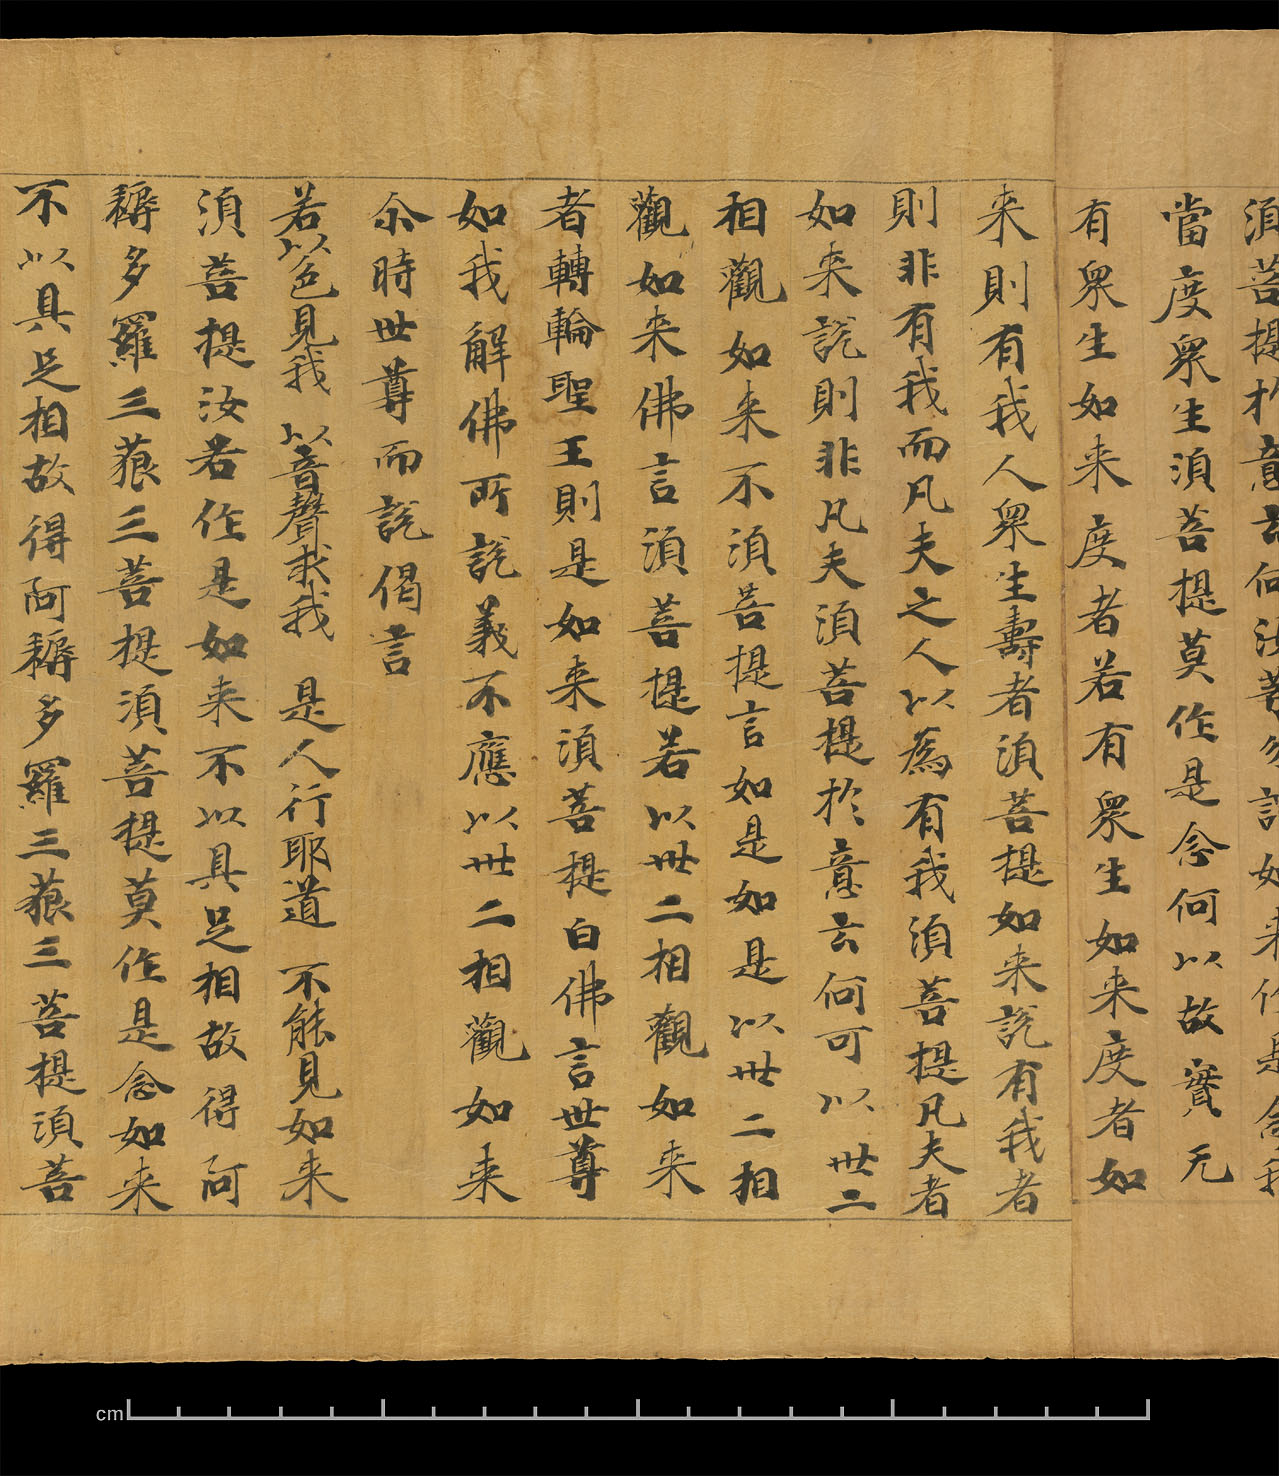 須菩提於意云何汝等勿謂如来作是念我
當度衆生須菩提莫作是念何以故實无
有衆生如来度者若有衆生如来度者如
来則有我人衆生壽者須菩提如来説有我者
則非有我而凡夫之人以為有我須菩提凡夫者
如来説則非凡夫須菩提於意云何可以卅二
相觀如来不須菩提言如是如是以卅二相
觀如来佛言須菩提若以卅二相觀如来
者轉輪聖王則是如来須菩提白佛言世尊
如我解佛所説義不應以卅二相觀如来
尒時世尊而説偈言
若以色見我 以音聲求我 是人行耶道 不能見如来
須菩提汝若作是如来不以具足相故得阿
耨多羅三藐三菩提須菩提莫作是念如来
不以具足相故得阿耨多羅三藐三菩提須菩
cm